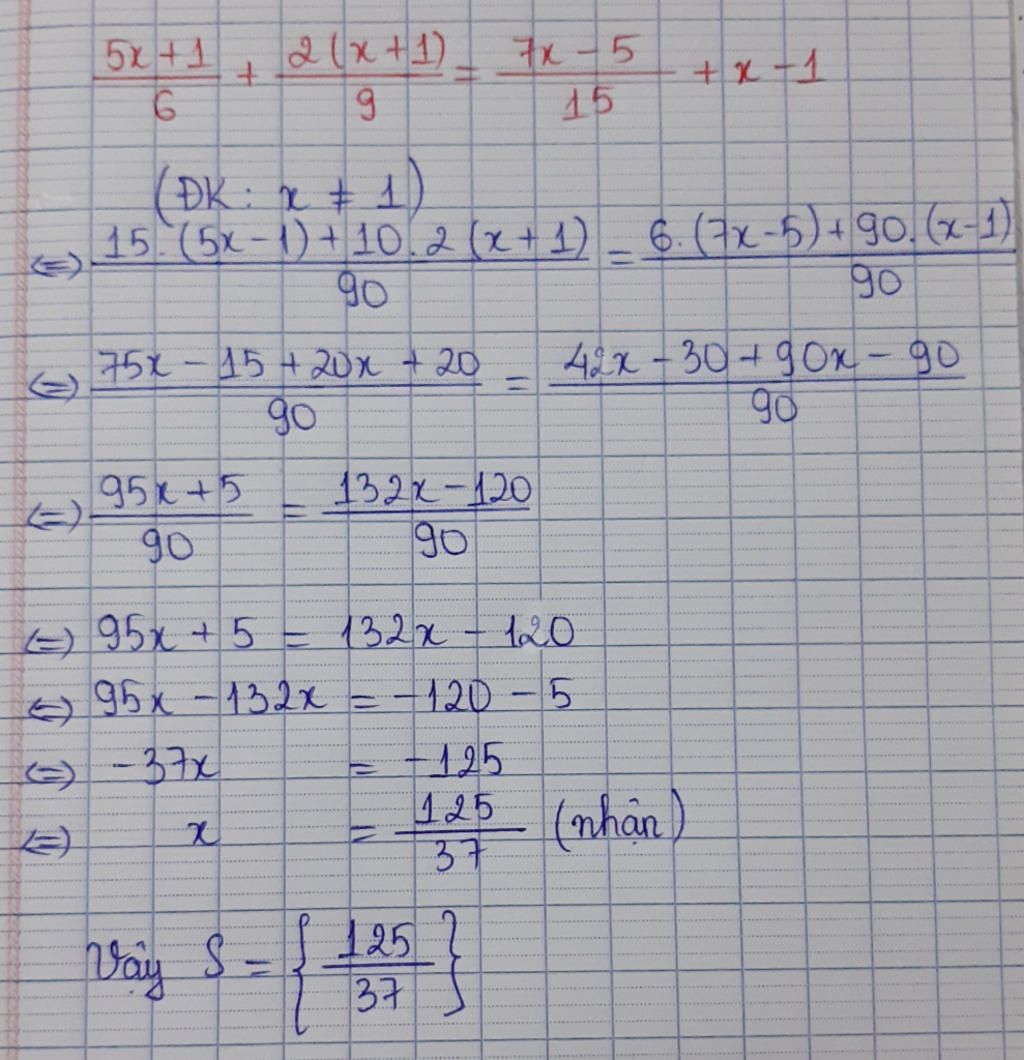 5x+1/6 + 2(x+1)/9 = 7x-5/15 + x-1
(ĐK: x ≠ 1)
⇔ 15.(5x-1)+10.2(x+1)/90 = 6.(7x-5)+90.(x-1)/90
⇔ 75x-15+20x+20/90 = 42x-30+90x-90/90
⇔ 95x+5/90 = 132x-120/90
⇔ 95x+5 = 132x-120
⇔ 95x-132x = -120-5
⇔ -37x = -125
⇔ x = 125/37 (nhận)
Vậy S = {125/37}